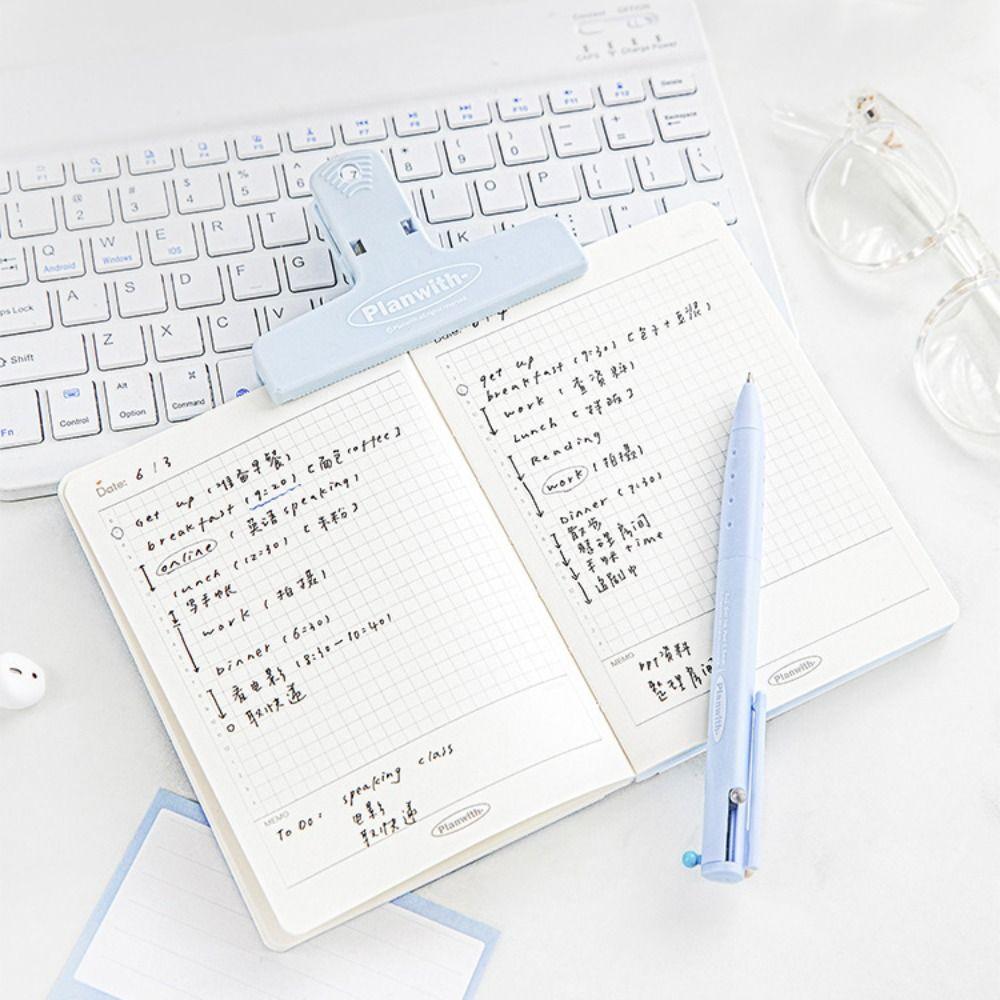 Connect OFF/ON
CAPS Charge Power
F1 F2 F3 F4 F5 F6 F7 F8 F9 F10 F11 F12 Delete
! 1 @ 2 # 3 $ 4 % 5 ^ 6 7 * 8 ( 9 ) 0 — - + = Backspace
Q W E R T I O P { [ } ] | \
Android Windows IOS
Caps Lock A S D F G K : ; " '
Shift Z X C V
Fn Control Alt Option Command
Planwith
Date: 6 / 3
Get up (准备早餐)
breakfast (9:20) [面包 coffee]
online (英语 speaking)
lunch (12:30) [米粉]
写手帐
work (拍摄)
Dinner (6:30)
看电影 (8:30-10:40)
取快递
MEMO
To Do: speaking class
电影
取快递
Planwith
Date: 6 / 4
get up
breakfast (9:30) [包子+豆浆]
work (查資料)
Lunch [
Reading
work (拍摄)
Dinner (7:30)
散步
整理房间
手帐 time
追剧中
MEMO
PPT資料
整理房间
Planwith
Planwith